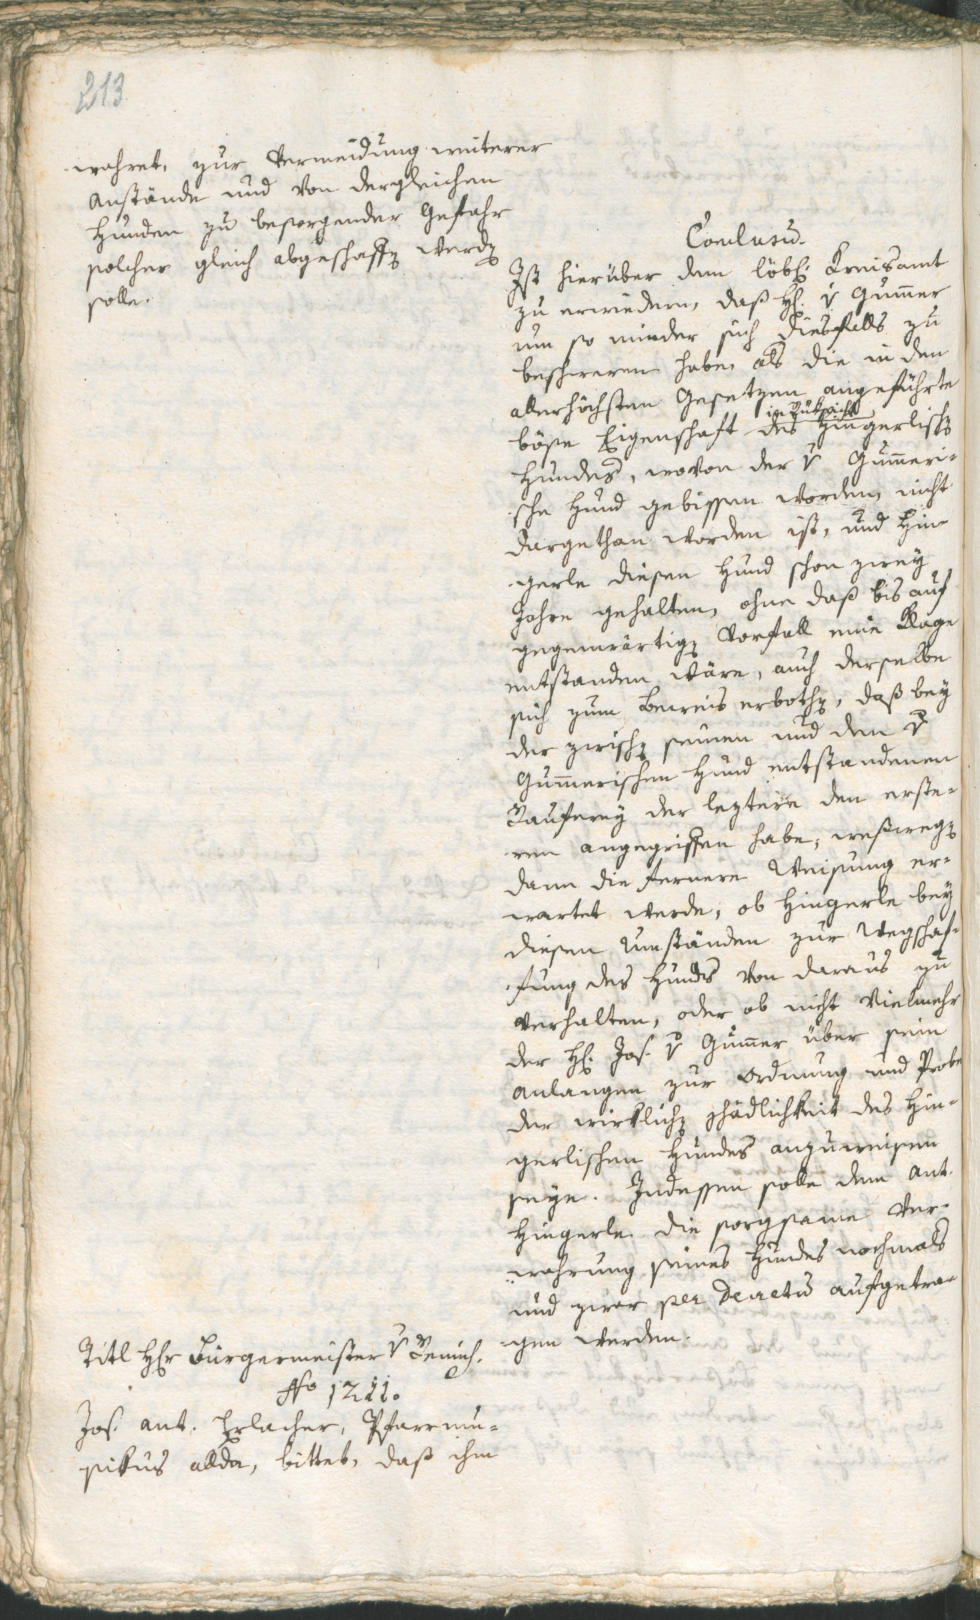 213
wahret, zur Vermeidung weiterer
Anstände und von dergleichen
Hunden zu besorgender Gefahr
solcher gleich abgeschaft werd
solle.
Conclusū.
Ist hierüber dem löbl: Kreisamt
zu erwiedern, daß H: v Gum̄er
um so minder sich diesfalls zu
beschweren habe, als die in den
allerhöchsten Gesetzen angeführte
in Rüksicht
böse Eigenschaft des Hingerlisch
Hundes, wovon der v Gum̄eri-
sche Hund gebissen worden, nicht
dargethan worden ist, und Hin-
gerle diesen Hund schon zwey
Jahre gehalten, ohne daß bis auf
gegenwärtig Vorfall eine Klage
entstanden wäre, auch derselbe
sich zum Beweis erboth, daß bey
der zwisch seinen und dem v
Gum̄erischen Hund entstandenen
Rauferey der leztere den erste-
ren angegriffen habe, weßweg
dann die fernere Weisung er-
wartet werde, ob Hingerle bey
diesen Umständen zur Wegschaf-
fung des Hunds von daraus zu
verhalten, oder ob nicht vielmehr
der H: Jos. v Gum̄er über sein
Anlangen zur Ordnung und Probe
der wirklich schädlichkeit des Hin-
gerlischen Hundes anzuweisen
seye. Indessen solle dem Ant.
Hingerle die sorgsame Ver-
wahrung seines Hundes nochmals
und zwar per Decretū aufgetra-
gen werden.
Titl Hr Bürgermeister v
No 1211.
Jos. Ant. Erlacher, Pfarrmu-
sikus allda, bittet, daß ihm